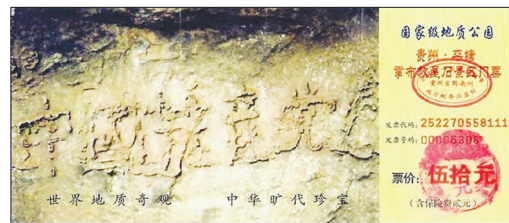 中国共产党
世界地质奇观 中华旷代珍宝
国家级地质公园
贵州·平塘
掌布救星石景区门票
发票代码：252270558111
发票号码：00006306
票价：伍拾元
（含保险费贰元）